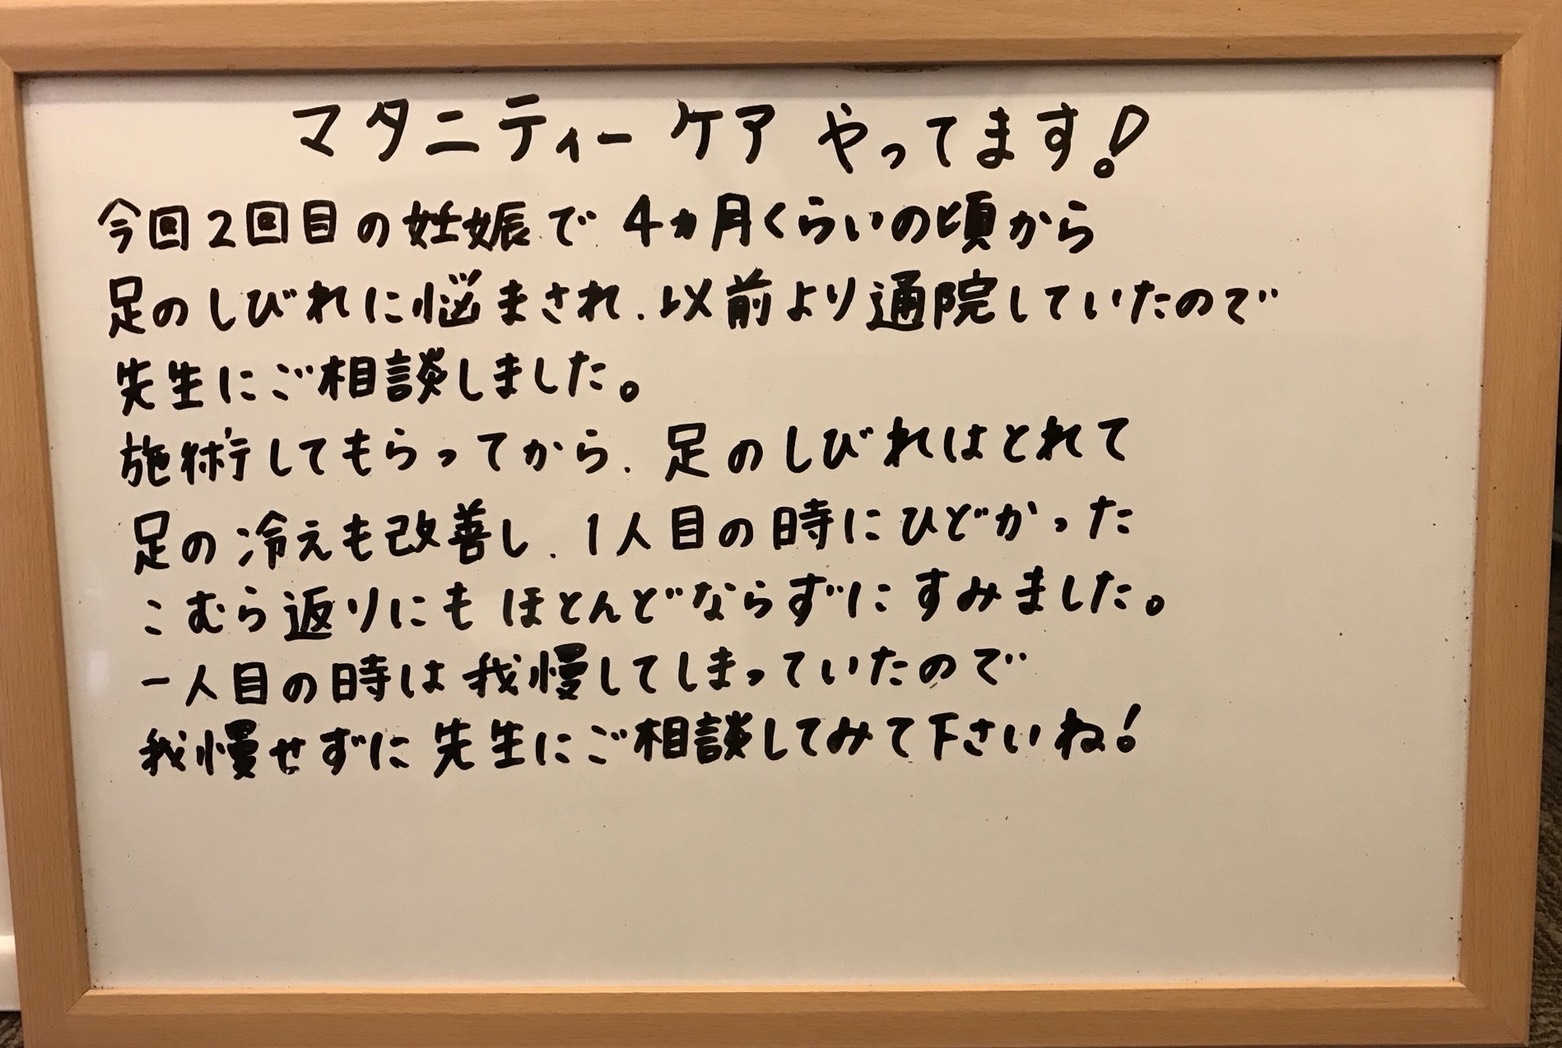 マタニティーケアやってます!
今回2回目の妊娠で4ヵ月くらいの頃から
足のしびれに悩まされ、以前より通院していたので
先生にご相談しました。
施術してもらってから、足のしびれはとれて
足の冷えも改善し、1人目の時にひどかった
こむら返りにもほとんどならずにすみました。
一人目の時は我慢してしまっていたので
我慢せずに先生にご相談してみて下さいね!